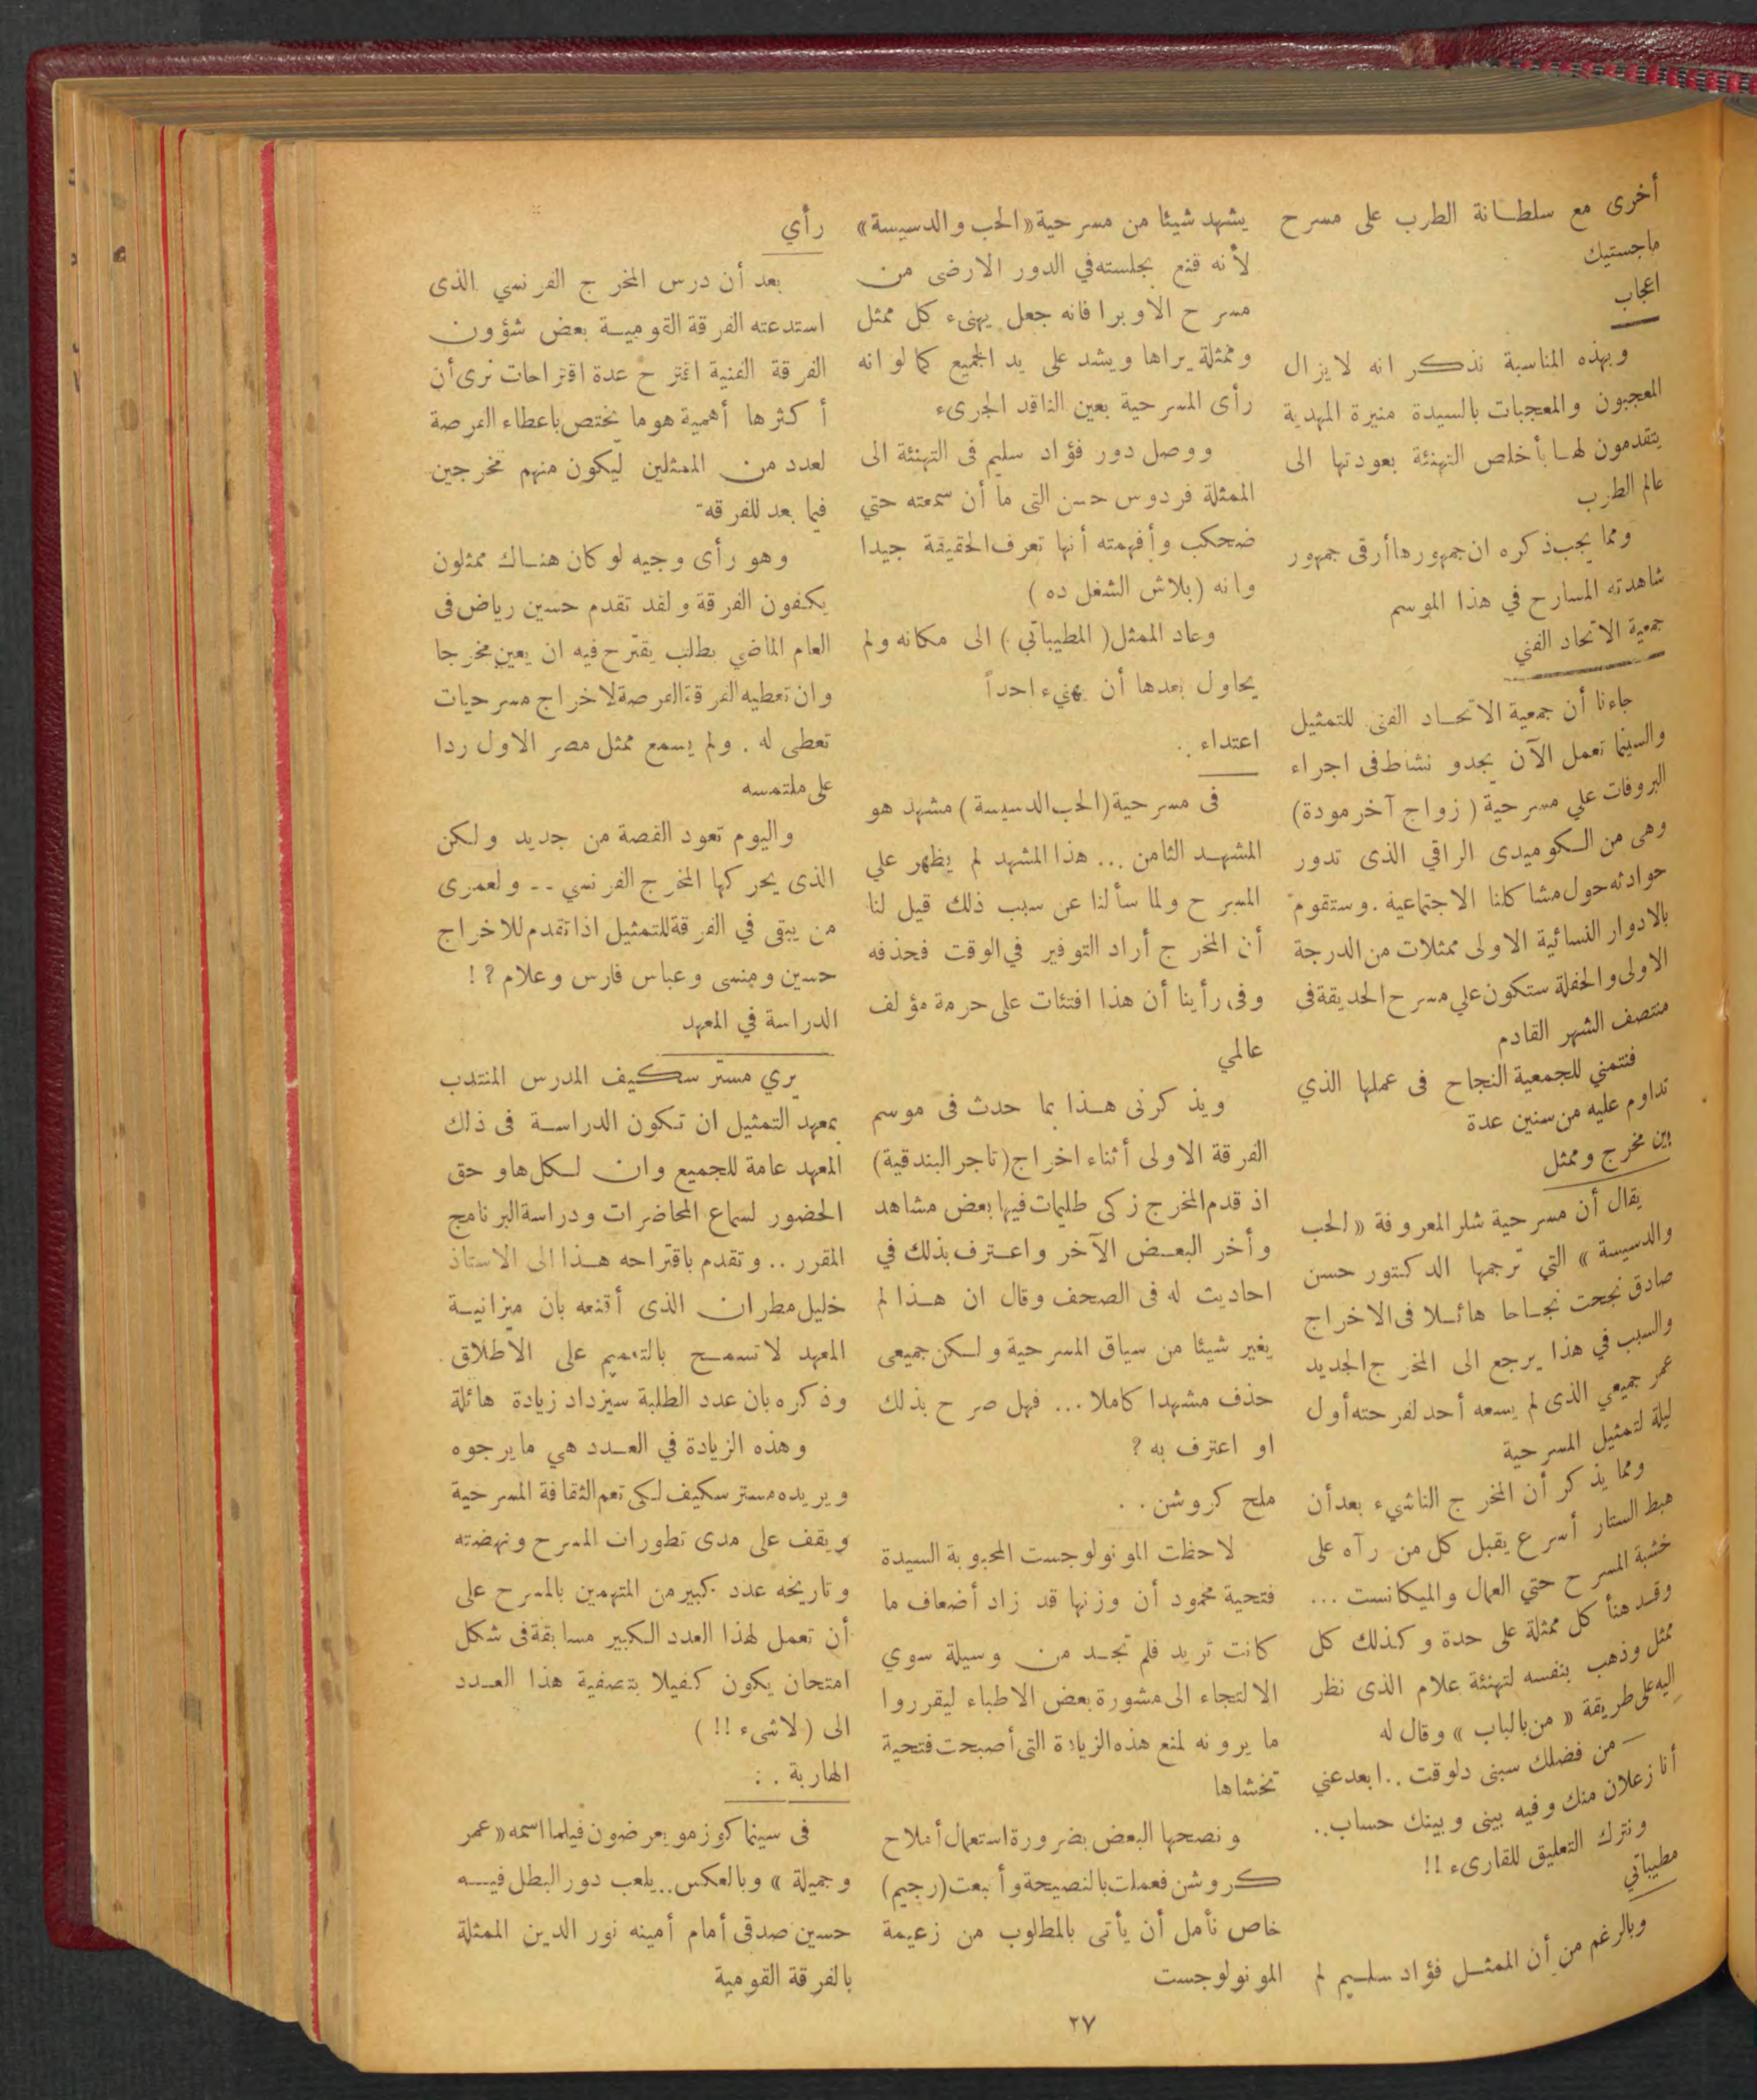 أخرى مع سلطانة الطرب على مسرح
ماجستيك
اعجاب
وبهذه المناسبة نذكر انه لا يزال
المعجبون والمعجبات بالسيدة منيرة المهدية
يتقدمون لها بأخلص التهنئة بعودتها الى
عالم الطرب
ومما يجب ذكره ان جمهورها أرقى جمهور
شاهدته المسارح في هذا الموسم
جمعية الاتحاد الفني
جاءنا أن جمعية الاتحاد الفنى للتمثيل
والسينما تعمل الآن بجدو نشاط فى اجراء
البروفات علي مسرحية ( زواج آخر مودة )
وهى من الكوميدى الراقي الذى تدور
حوادثه حول مشاكلنا الاجتماعية . وستقوم
بالادوار النسائية الاولى ممثلات من الدرجة
الاولى والحفلة ستكون علي مسرح الحديقة فى
منتصف الشهر القادم
فنتمني للجمعية النجاح فى عملها الذي
تداوم عليه من سنين عدة
بين مخرج وممثل
يقال أن مسرحية شلر المعروفة « الحب
والدسيسة » التي ترجمها الدكتور حسن
صادق نجحت نجاحا هائلا فى الاخراج
والسبب في هذا يرجع الى المخرج الجديد
عمر جميعي الذى لم يسعه أحد لفرحته أول
ليلة لتمثيل المسرحية
ومما يذكر أن المخرج الناشيء بعد أن
هبط الستار أسرع يقبل كل من رآه على
خشبة المسرح حتي العمال والميكانست ...
وقد هنأ كل ممثلة على حدة وكذلك كل
ممثل وذهب بنفسه لتهنئة علام الذى نظر
اليه على طريقة « من بالباب » وقال له
— من فضلك سبنى دلوقت .. ابعد عني
أنا زعلان منك وفيه بينى وبينك حساب ..
ونترك التعليق للقارىء !!
مطيباتي
وبالرغم من أن الممثل فؤاد سليم لم
يشهد شيئا من مسرحية « الحب والدسيسة »
لأنه قنع بجلسته في الدور الارضى من
مسرح الاوبرا فانه جعل يهنىء كل ممثل
وممثلة يراها ويشد على يد الجميع كما لو انه
رأى المسرحية بعين الناقد الجرىء
ووصل دور فؤاد سليم فى التهنئة الى
الممثلة فردوس حسن التى ما أن سمعته حتي
ضحكب وأفهمته أنها تعرف الحقيقة جيدا
وانه ( بلاش الشغل ده )
وعاد الممثل ( المطيباتي ) الى مكانه ولم
يحاول بعدها أن يهنىء احداً
اعتداء ..
فى مسرحية ( الحب الدسيسة ) مشهد هو
المشهد الثامن ... هذا المشهد لم يظهر علي
المسرح ولما سألنا عن سبب ذلك قيل لنا
أن المخرج أراد التوفير في الوقت فحذفه
وفى رأينا أن هذا افتئات على حرمة مؤلف
عالمي
ويذكرنى هذا بما حدث فى موسم
الفرقة الاولى أثناء اخراج ( تاجر البندقية )
اذ قدم المخرج زكى طليمات فيها بعض مشاهد
وأخر البعض الآخر واعترف بذلك في
احاديث له فى الصحف وقال ان هذا لم
يغير شيئا من سياق المسرحية ولكن جميعى
حذف مشهدا كاملا ... فهل صرح بذلك
او اعترف به ؟
ملح كروشن ..
لاحظت المونولوجست المحبوبة السيدة
فتحية محمود أن وزنها قد زاد أضعاف ما
كانت تريد فلم تجد من وسيلة سوي
الالتجاء الى مشورة بعض الاطباء ليقرروا
ما يرونه لمنع هذه الزيادة التى أصبحت فتحية
تخشاها
ونصحها البعض بضرورة استعمال أملاح
كروشن فعملت بالنصيحة وأتبعت ( رجيم )
خاص نأمل أن يأتى بالمطلوب من زعيمة
المونولوجست
رأي
بعد أن درس المخرج الفرنسي الذى
استدعته الفرقة القومية بعض شؤون
الفرقة الفنية اقترح عدة اقتراحات نرى أن
أكثرها أهمية هو ما يختص باعطاء الفرصة
لعدد من الممثلين ليكون منهم مخرجين
فيما بعد للفرقه
وهو رأى وجيه لو كان هناك ممثلون
يكفون الفرقة ولقد تقدم حسين رياض فى
العام الماضي بطلب يقترح فيه ان يعين مخرجا
وان تعطيه الفرقة الفرصة لاخراج مسرحيات
تعطى له . ولم يسمع ممثل مصر الاول ردا
على ملتمسه
واليوم تعود القصة من جديد ولكن
الذى يحركها المخرج الفرنسي -- ولعمرى
من يبقى في الفرقة للتمثيل اذا تقدم للاخراج
حسين ومنسى وعباس فارس وعلام ؟ !
الدراسة في المعهد
يري مستر سكيف المدرس المنتدب
بمعهد التمثيل ان تكون الدراسة فى ذلك
المعهد عامة للجميع وان لكل هاو حق
الحضور لسماع المحاضرات ودراسة البرنامج
المقرر .. وتقدم باقتراحه هذا الى الاستاذ
خليل مطران الذى أقنعه بان ميزانية
المعهد لا تسمح بالتعميم على الاطلاق .
وذكره بان عدد الطلبة سيزداد زيادة هائلة
وهذه الزيادة في العدد هي ما يرجوه
ويريده مستر سكيف لكى تعم الثقافة المسرحية
ويقف على مدى تطورات المسرح ونهضته
وتاريخه عدد كبير من المتهمين بالمسرح على
أن تعمل لهذا العدد الكبير مسابقة فى شكل
امتحان يكون كفيلا بتصفية هذا العدد
الى ( لاشىء !! )
الهاربة . :
فى سينما كوزمو يعرضون فيلما اسمه « عمر
وجميلة » وبالعكس .. يلعب دور البطل فيه
حسين صدقى أمام أمينه نور الدين الممثلة
بالفرقة القومية
٢٧